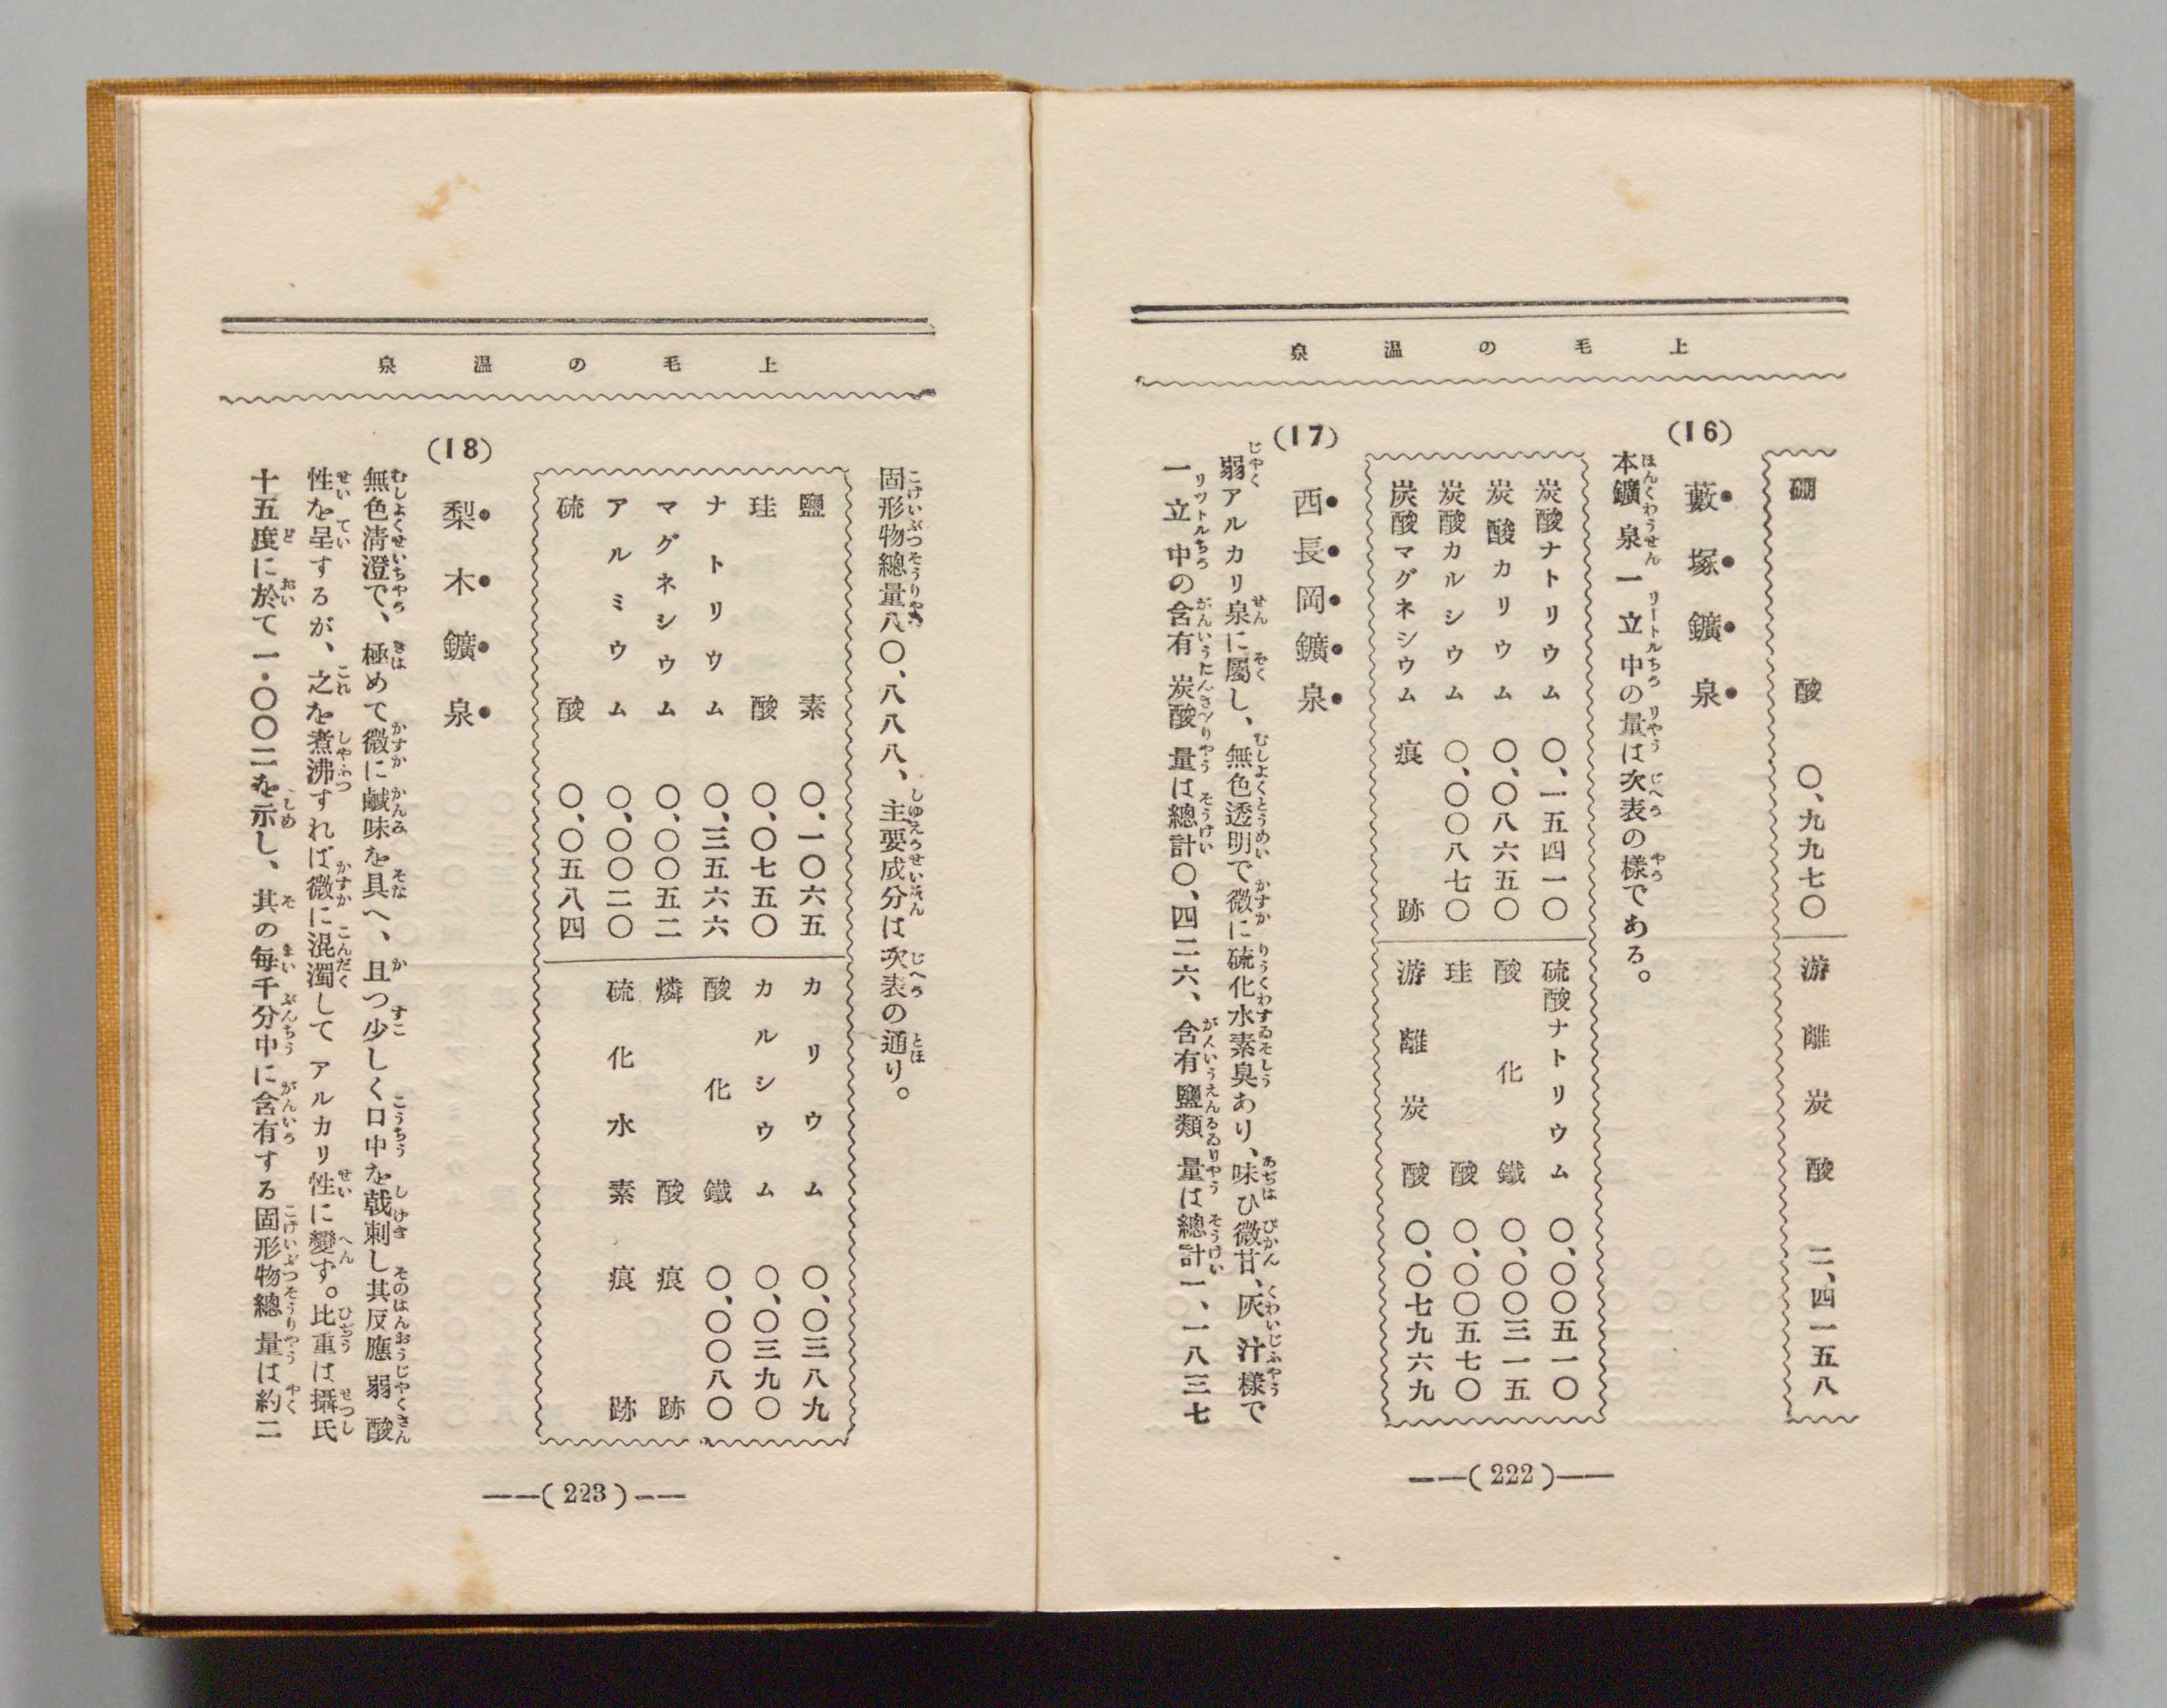 上毛の温泉
硼酸 〇、九九七〇
游離炭酸 二、四一五八
(16) 藪塚鑛泉
本鑛泉一立中の量は次表の樣である。
炭酸ナトリウム 〇、一五四一〇
炭酸カリウム 〇、〇八六五〇
炭酸カルシウム 〇、〇〇八七〇
炭酸マグネシウム 痕跡
硫酸ナトリウム 〇、〇〇五一〇
酸化鐵 〇、〇〇三一五
珪酸 〇、〇〇五七〇
游離炭酸 〇、〇七九六九
(17) 西長岡鑛泉
弱アルカリ泉に屬し、無色透明で微に硫化水素臭あり、味ひ微甘、灰汁樣で
一立中の含有炭酸量は總計〇、四二六、含有鹽類量は總計一、一八三七
——(222)——
上毛の温泉
固形物總量八〇、八八八、主要成分は次表の通り。
鹽素 〇、一〇六五
珪酸 〇、〇七五〇
ナトリウム 〇、三五六六
マグネシウム 〇、〇〇五二
アルミウム 〇、〇〇二〇
硫酸 〇、〇五八四
カリウム 〇、〇三八九
カルシウム 〇、〇三九〇
酸化鐵 〇、〇〇八〇
燐酸 痕跡
硫化水素 痕跡
(18) 梨木鑛泉
無色淸澄で、極めて微に鹹味を具へ、且つ少しく口中を戟刺し其反應弱酸
性を呈するが、之を煮沸すれば微に混濁してアルカリ性に變す。比重は攝氏
十五度に於て一・〇〇二を示し、其の毎千分中に含有する固形物總量は約二
——(223)——